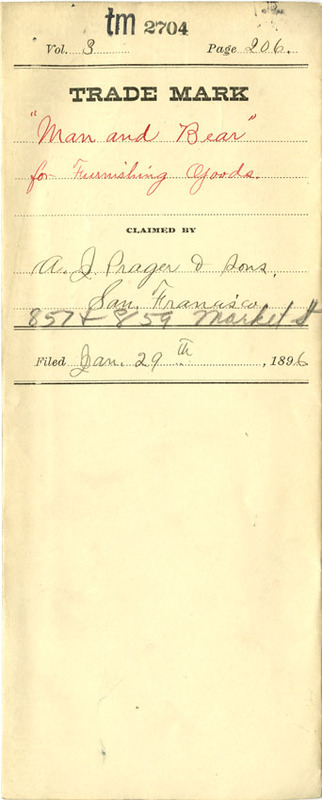 tm 2704
Vol. 3 Page 206.
TRADE MARK
"Man and Bear"
for Furnishing Goods.
CLAIMED BY
A. J Prager & Sons,
San Francisco
857 & 859 Market St
Filed Jan. 29th, 1896